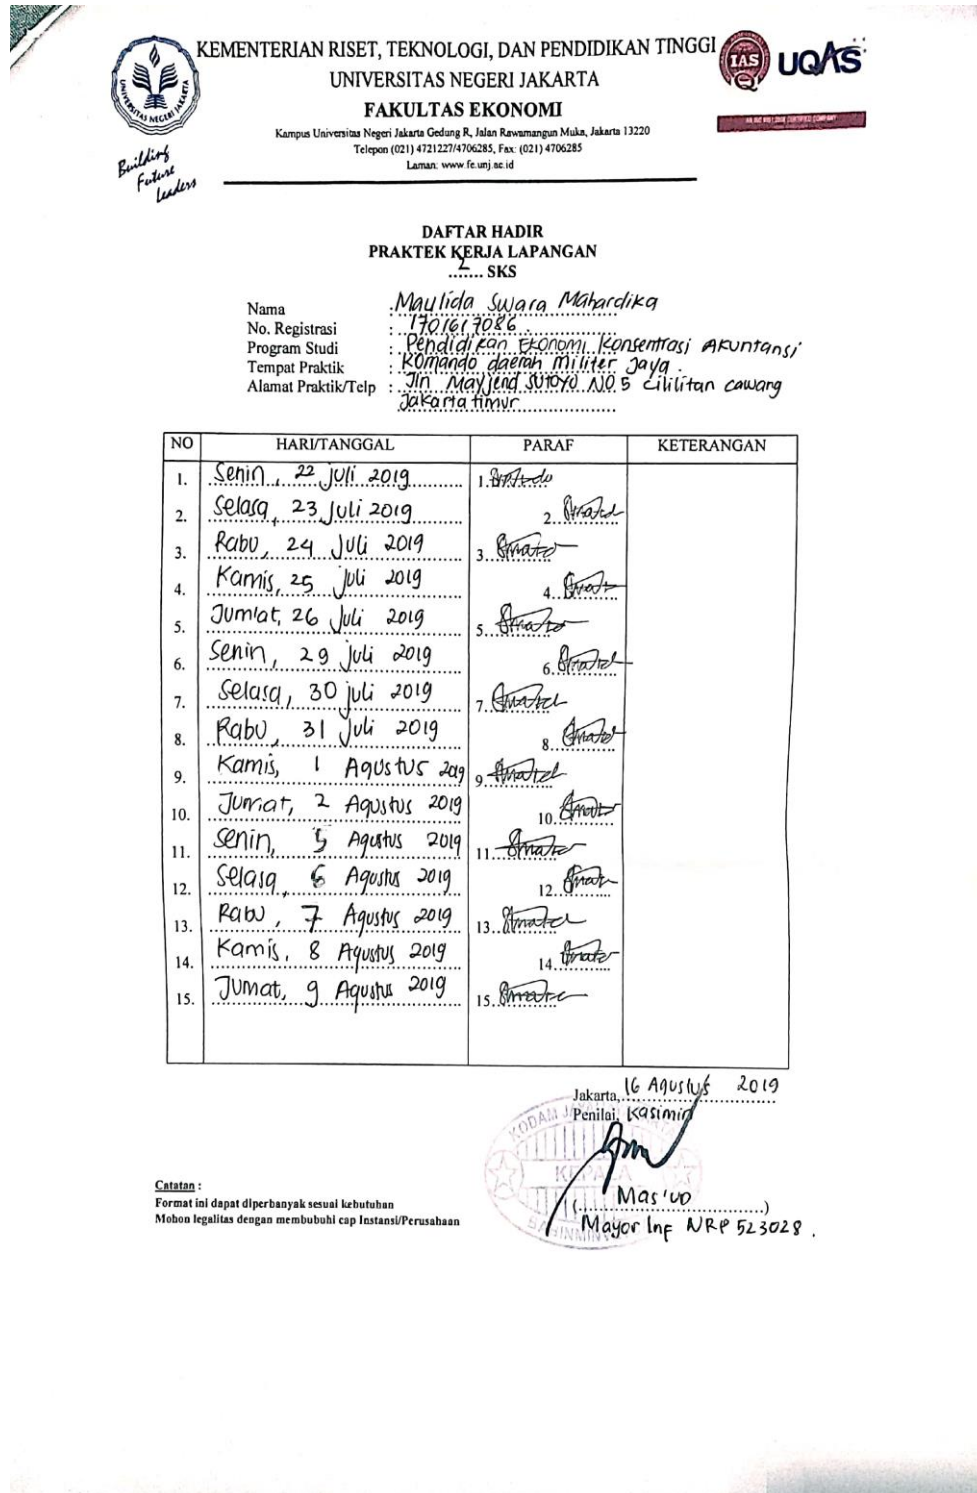 KEMENTERIAN RISET, TEKNOLOGI, DAN PENDIDIKAN TINGGI
UNIVERSITAS NEGERI JAKARTA
FAKULTAS EKONOMI
Kampus Universitas Negeri Jakarta Gedung R, Jalan Rawamangun Muka, Jakarta 13220
Telepon (021) 4721227/4706285, Fax: (021) 4706285
Laman: www.fe.unj.ac.id
UNIVERSITAS NEGERI JAKARTA
Building
Future
Leaders
IAS
UQAS
DAFTAR HADIR
PRAKTEK KERJA LAPANGAN
..2.. SKS
Nama : Maulida Swara Mahardika
No. Registrasi : 1701617086
Program Studi : Pendidikan Ekonomi Konsentrasi Akuntansi
Tempat Praktik : Komando daerah Militer Jaya.
Alamat Praktik/Telp : Jln Mayjend SUTOYO NO 5 cililitan cawang
Jakarta timur
NO HARI/TANGGAL PARAF KETERANGAN
1. Senin, 22 juli 2019 1.
2. Selasa, 23 Juli 2019 2.
3. Rabu, 24 Juli 2019 3.
4. Kamis, 25 Juli 2019 4.
5. Jum'at, 26 Juli 2019 5.
6. Senin, 29 juli 2019 6.
7. Selasa, 30 juli 2019 7.
8. Rabu, 31 Juli 2019 8.
9. Kamis, 1 Agustus 2019 9.
10. Jumat, 2 Agustus 2019 10.
11. Senin, 5 Agustus 2019 11.
12. Selasa, 6 Agustus 2019 12.
13. Rabu, 7 Agustus 2019 13.
14. Kamis, 8 Agustus 2019 14.
15. Jumat, 9 Agustus 2019 15.
Jakarta, 16 Agustus 2019
Penilai, Kasimin
KODAM
KEPALA
(Mas'ud)
Mayor Inf NRP 523028.
Catatan :
Format ini dapat diperbanyak sesuai kebutuhan
Mohon legalitas dengan membubuhi cap Instansi/Perusahaan